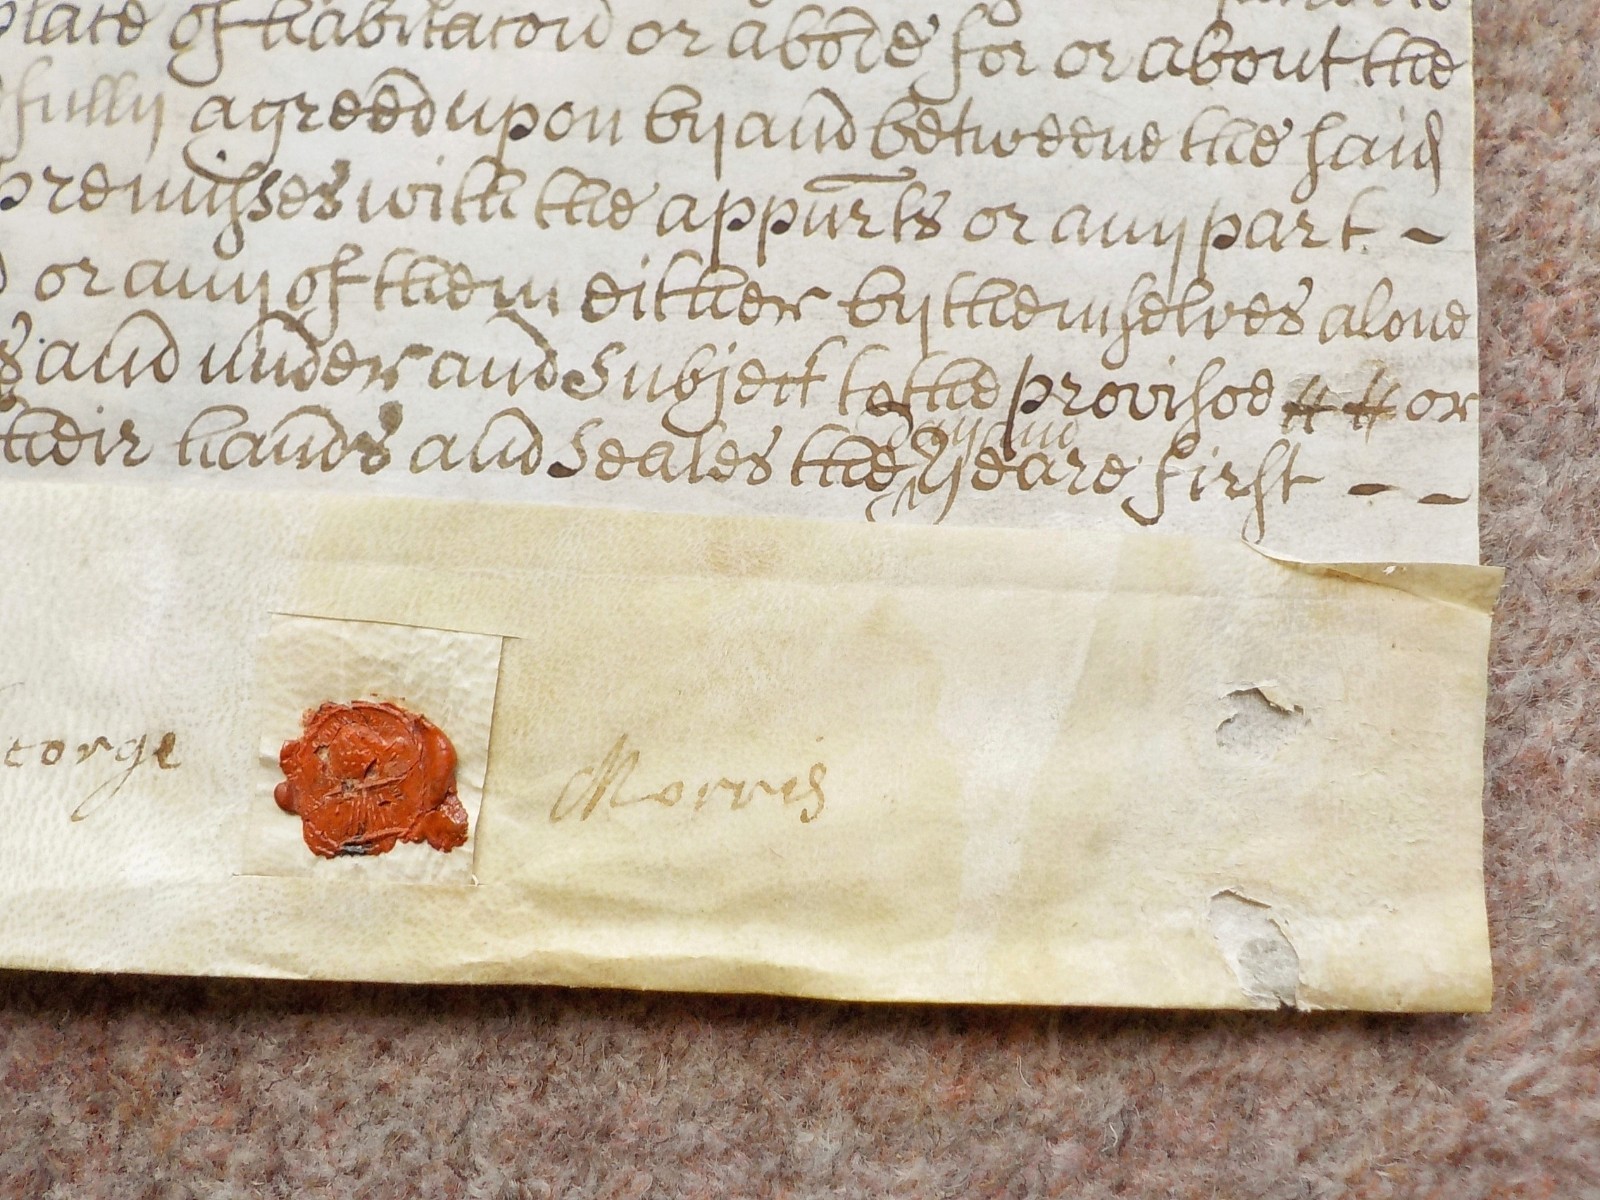 place of habitacon or abode for or about the
fully agreed upon by and betweene the said
premisses with the appurts or any part -
or any of them either by themselves alone
s and under and Subject to the provisoe or
day and
their hands and Seales the Yeare first - -
George Morris